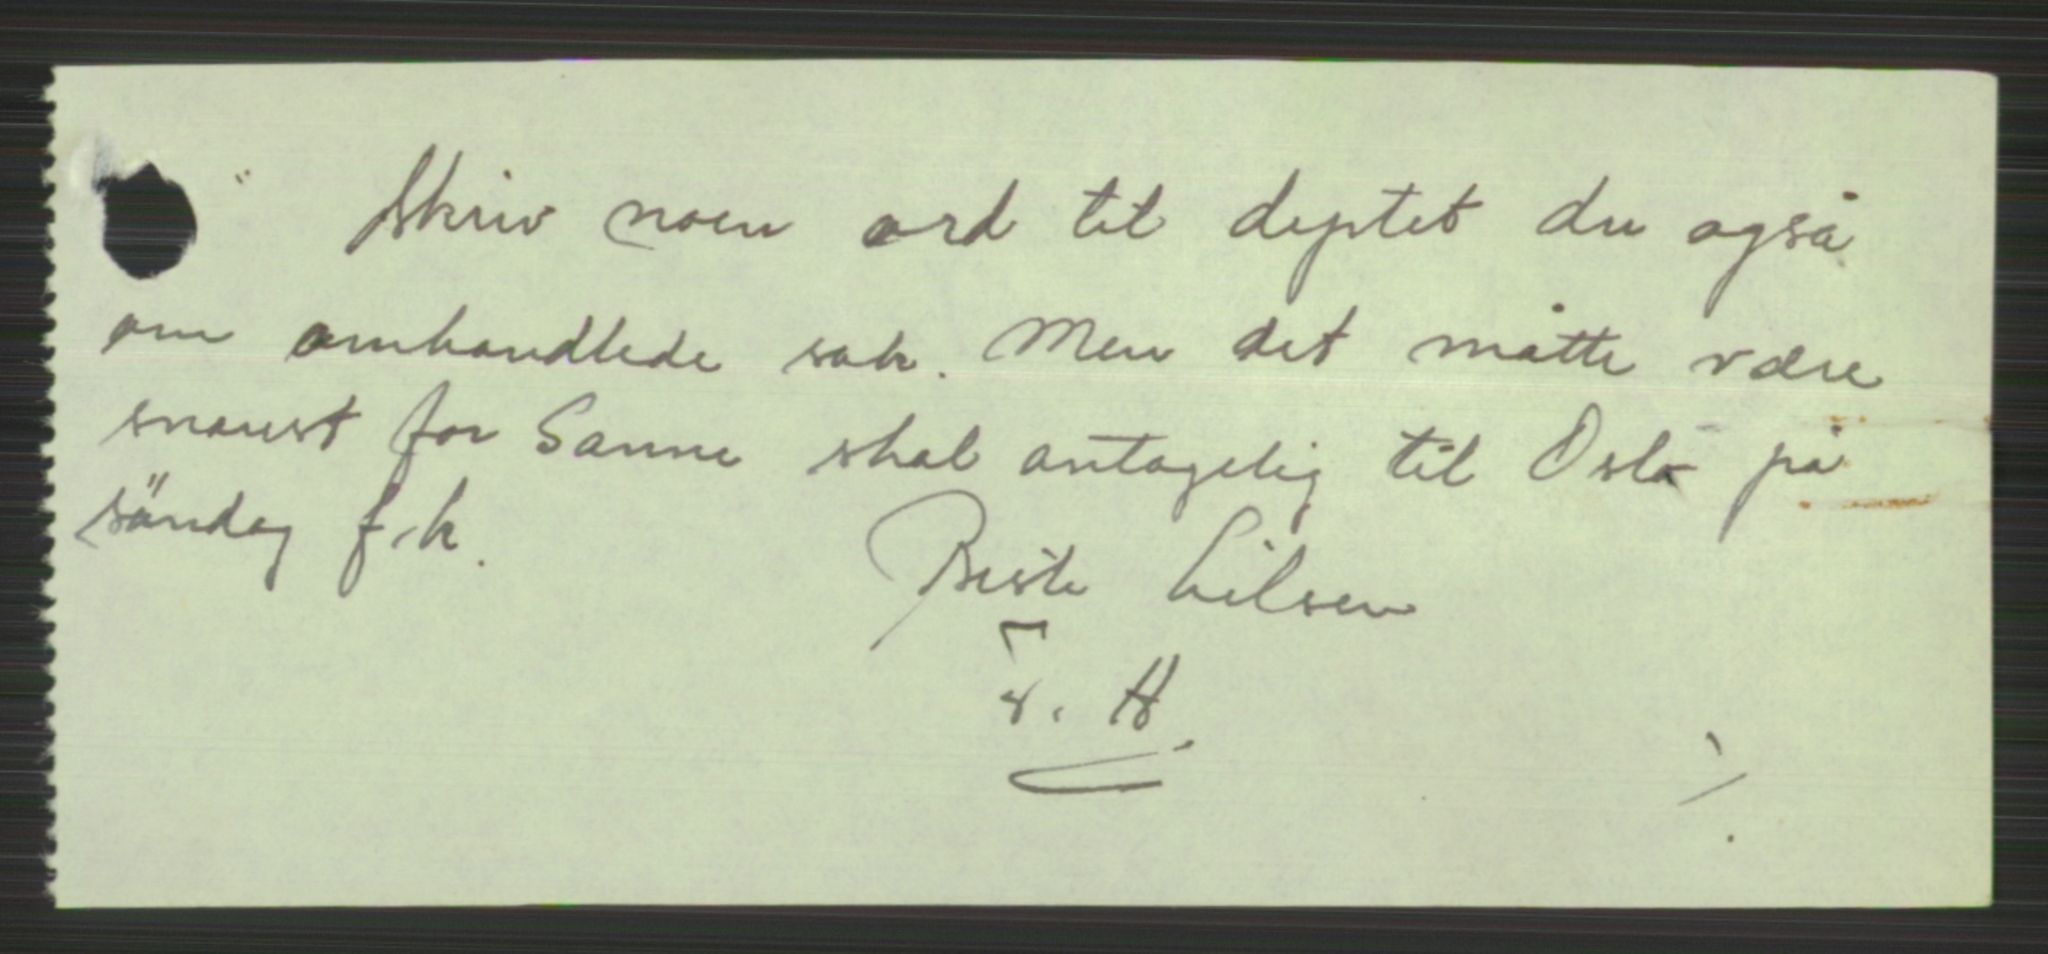 Skriv noen ord til deptet du også
om omhandlede sak. Men det måtte være
snarest for Sanne skal antagelig til Oslo på
söndag f.k.
Beste hilsen
H.